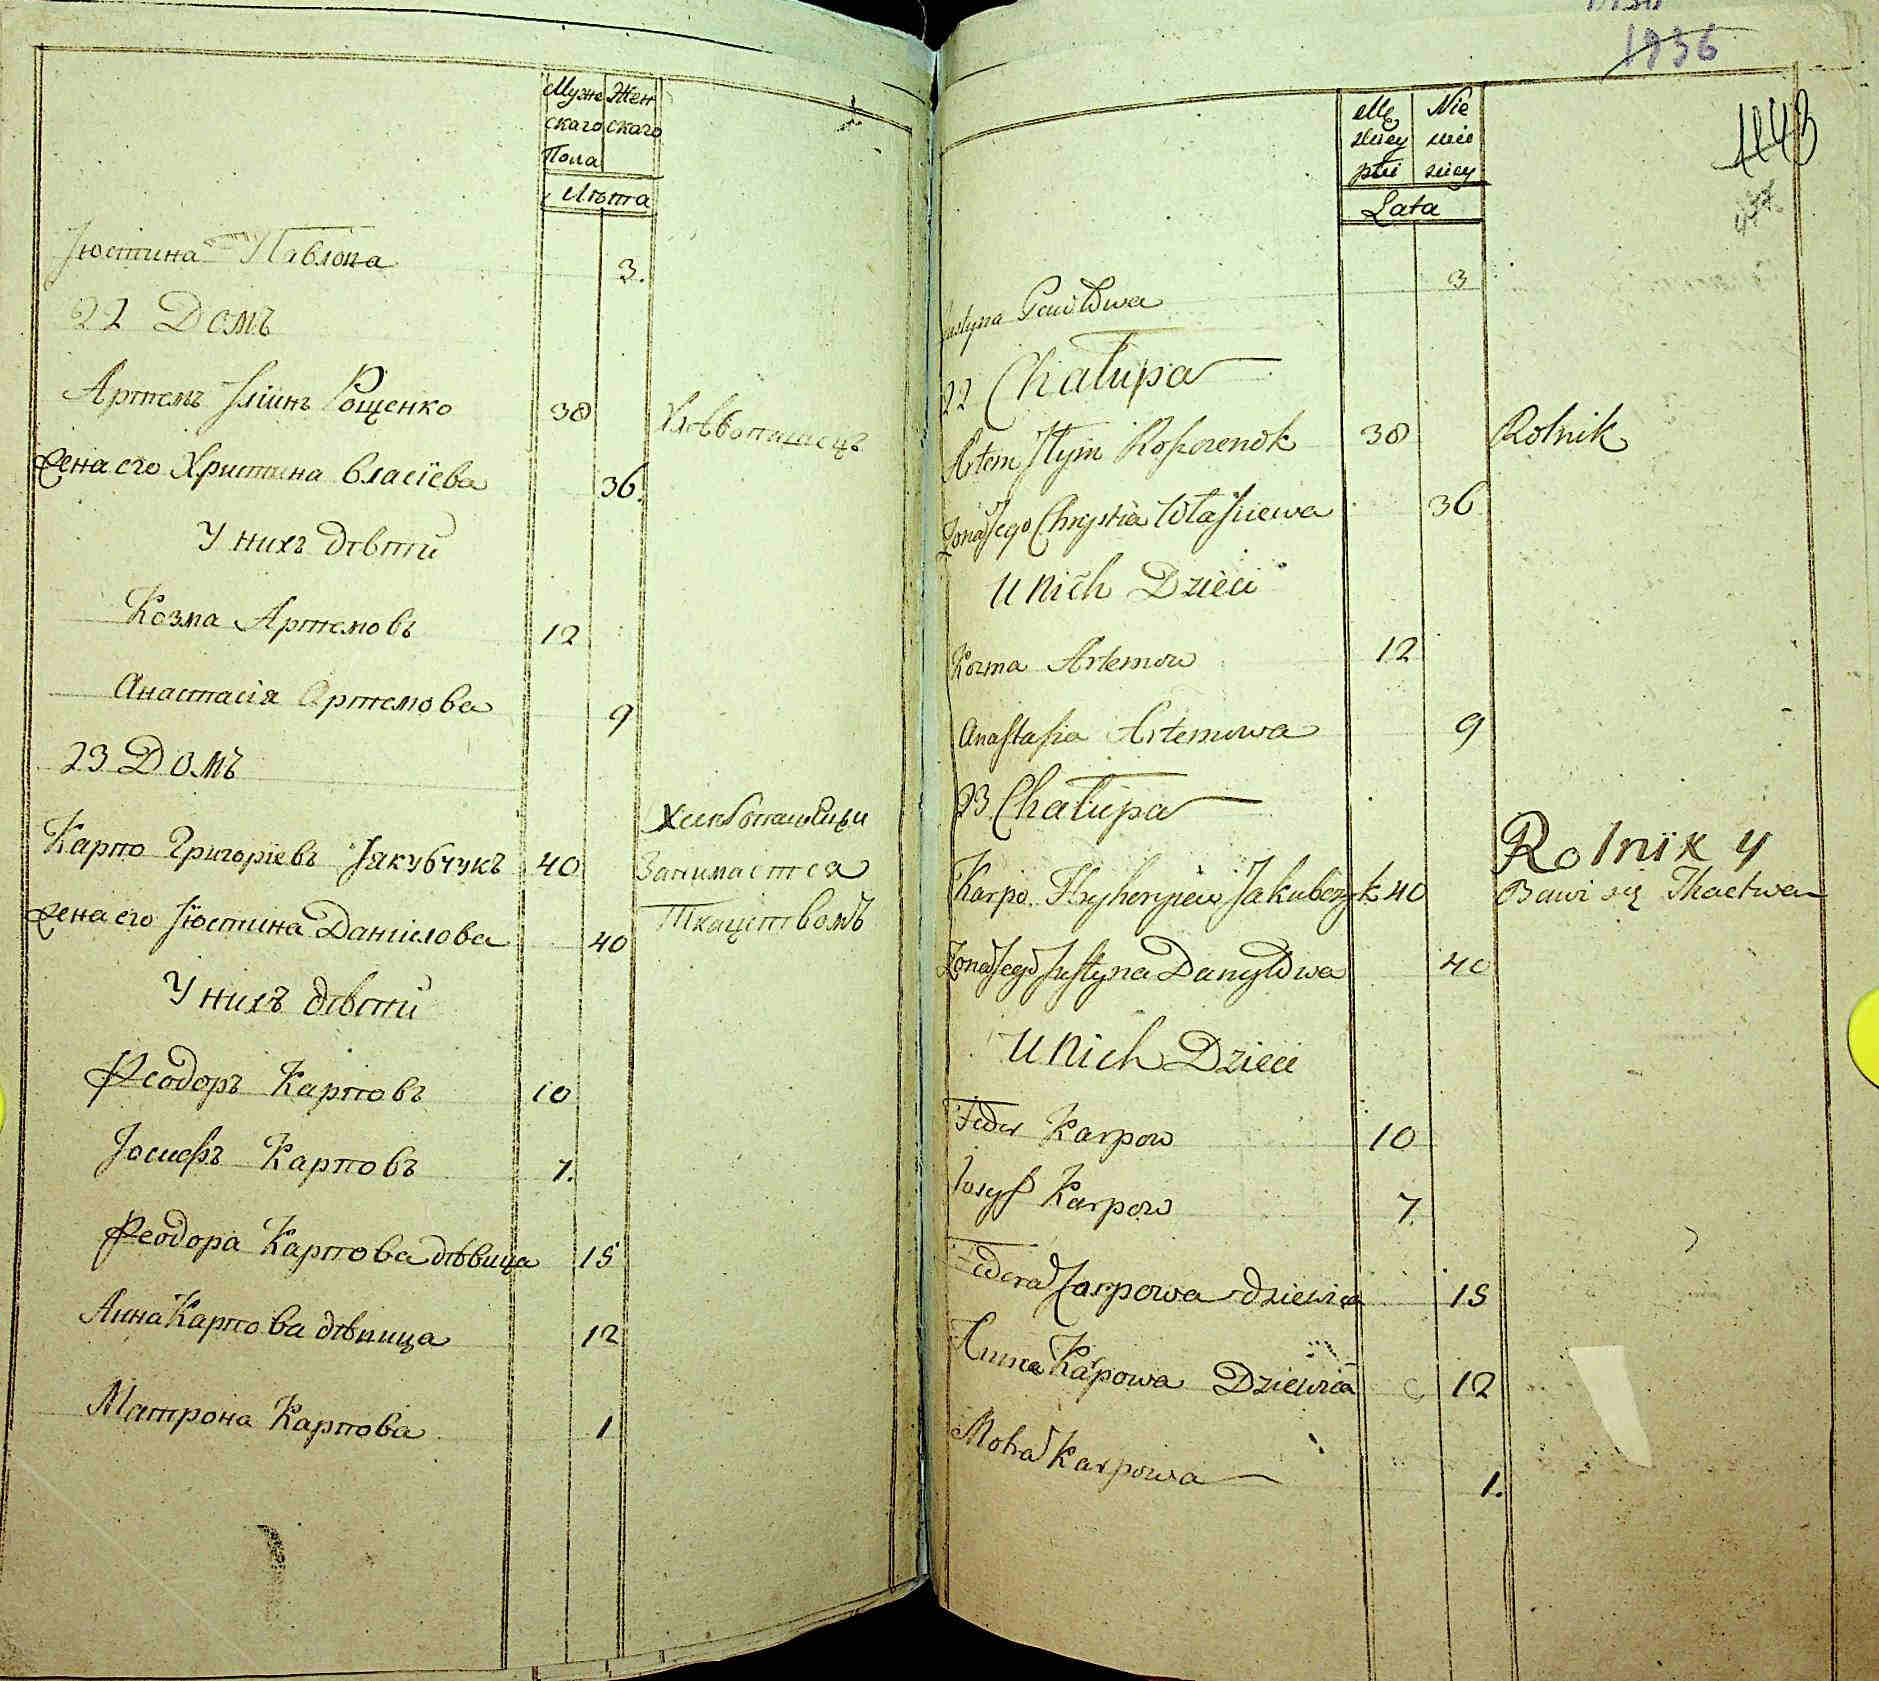 Муже Жен
скаго скаго
Пола
Лѣта
Іюстина Павлова 3.
22 Домъ
Артемъ Іліинъ Рощенко 38 Хлѣбопашецъ
Жена его Христина Власіева 36.
У нихъ дѣти
Козма Артемовъ 12
Анастасія Артемова 9
23 Домъ
Хлѣбопашецъ и
Карпо Григоріевъ Якубчукъ 40 Занимается
Жена его Іюстина Даніилова 40 Ткацствомъ
У нихъ дѣти
Феодоръ Карповъ 10
Іосифъ Карповъ 7.
Феодора Карпова дѣвица 15
Анна Карпова дѣвица 12
Матрона Карпова 1
1936
1143
Mę Nie
skiey wie
płci skiey
Lata
Justyna Pawłowa 3
22 Chałupa
Artem Jłyin Roszczenok 38 Rolnik
Żona Jego Chrystia Własiiewa 36
U nich Dzieci
Kozma Artemow 12
Anastasia Artemowa 9
23 Chałupa
Rolnik y
Karpo Hryhoryiew Jakubczyk 40 Bawi się Tkactwem
Żona Jego Justyna Danyłowa 40
U nich Dzieci
Fedor Karpow 10
Josyf Karpow 7.
Fedora Karpowa dziewica 15
Anna Karpowa Dziewica 12
Motra Karpowa 1.